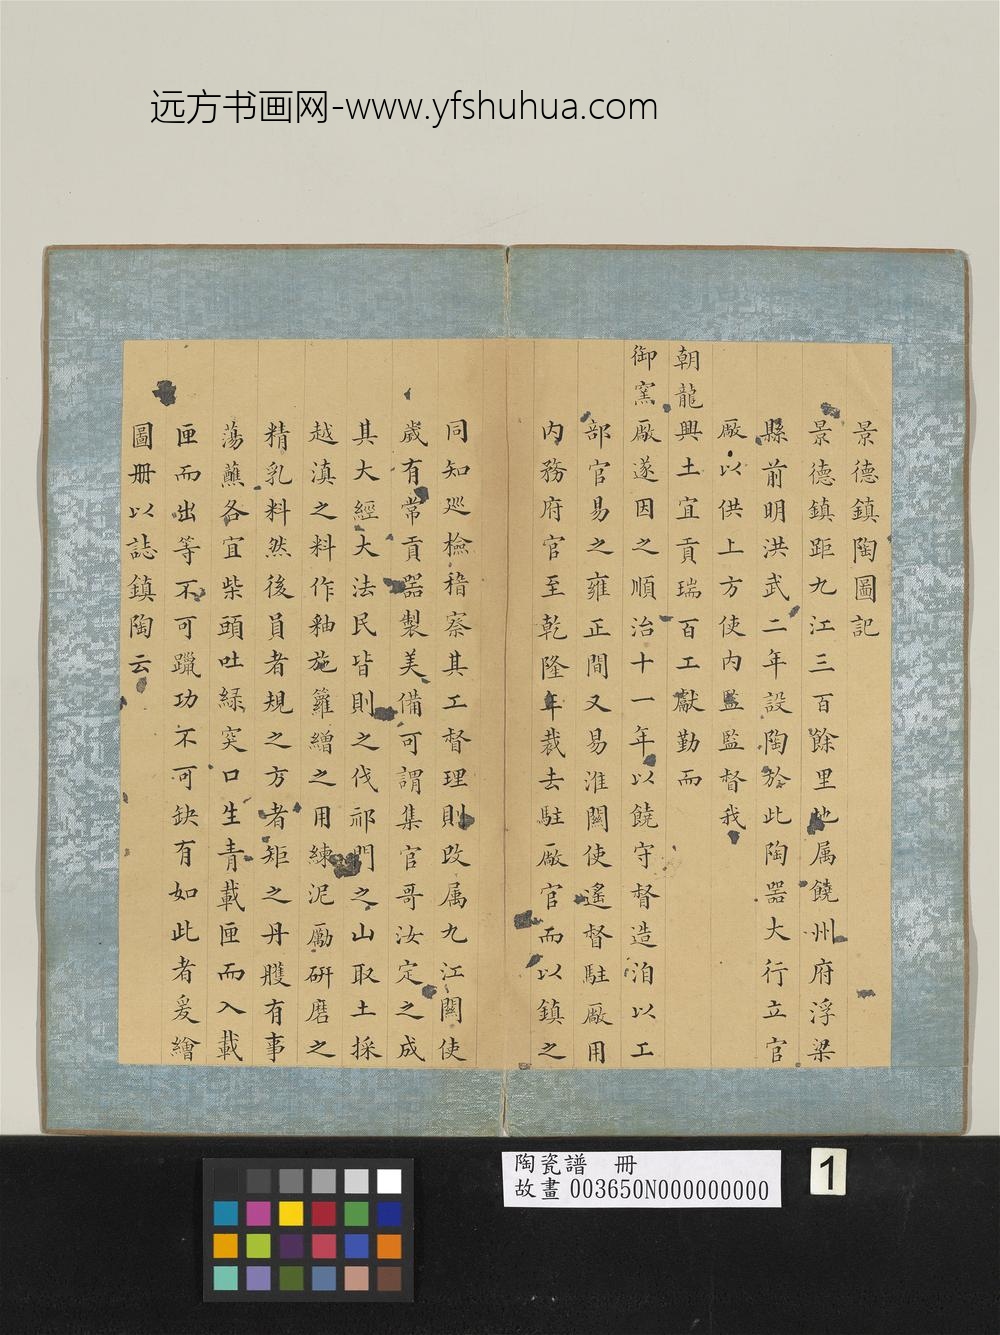 远方书画网-www.yfshuhua.com
景德鎮陶圖記
景德鎮距九江三百餘里地属饒州府浮梁
縣前明洪武二年設陶於此陶器大行立官
厰以供上方使內監監督我
朝龍興土宜貢瑞百工獻勤而
御窯厰遂因之順治十一年以饒守督造洎以工
部官易之雍正間又易淮關使遙督駐厰用
內務府官至乾隆年裁去駐厰官而以鎮之
同知巡檢稽察其工督理則改属九江關使
歲有常貢器製美備可謂集官哥汝定之成
其大經大法民皆則之伐祁門之山取土採
越滇之料作釉施籮繒之用練泥勵研磨之
精乳料然後員者規之方者矩之丹臒有事
蕩蘸各宜柴頭吐綠突口生青載匣而入載
匣而出等不可躐功不可缺有如此者爰繪
圖冊以誌鎮陶云
陶瓷譜 冊
故畫 003650N000000000
1